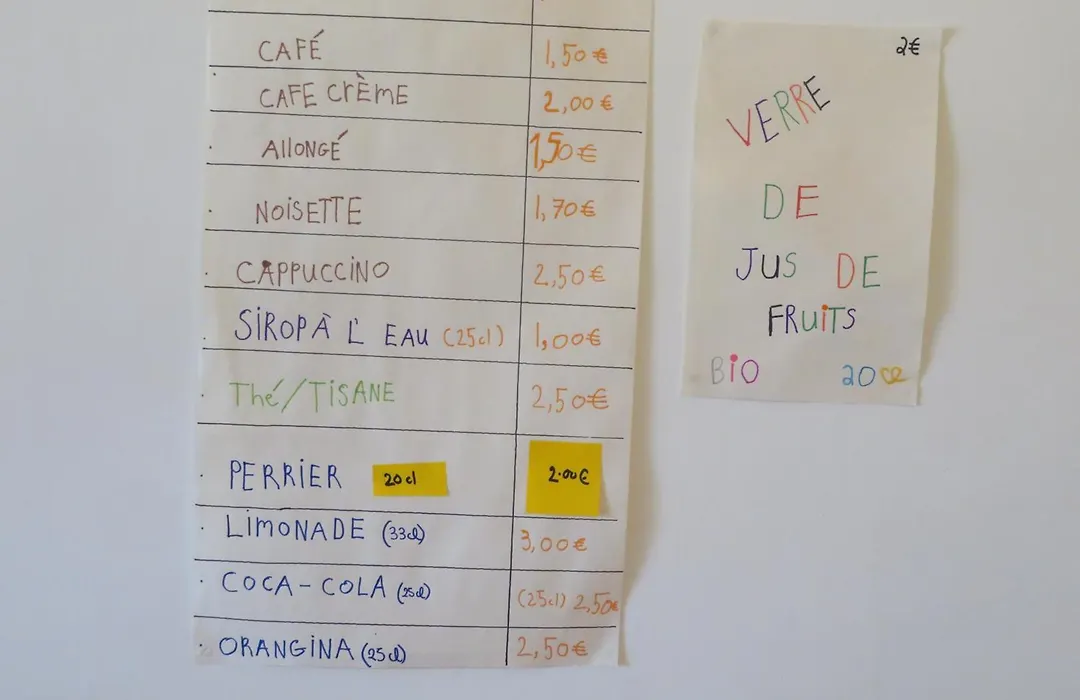 CAFÉ 1,50 €
CAFE CrÈmE 2,00 €
AllONGÉ 1,50 €
NOiSETTE 1,70 €
CAPPUCCiNO 2,50 €
SiROP À L' EAU (25cl) 1,00 €
Thé/TiSANE 2,50 €
PERRiER 20cl 2.00€
LimONADE (33cl) 3,00 €
COCA-COLA (25cl) (25cl) 2,50 €
ORANGiNA (25cl) 2,50 €
2€
VERRE
DE
JUS DE
FRUiTS
BiO 20cl